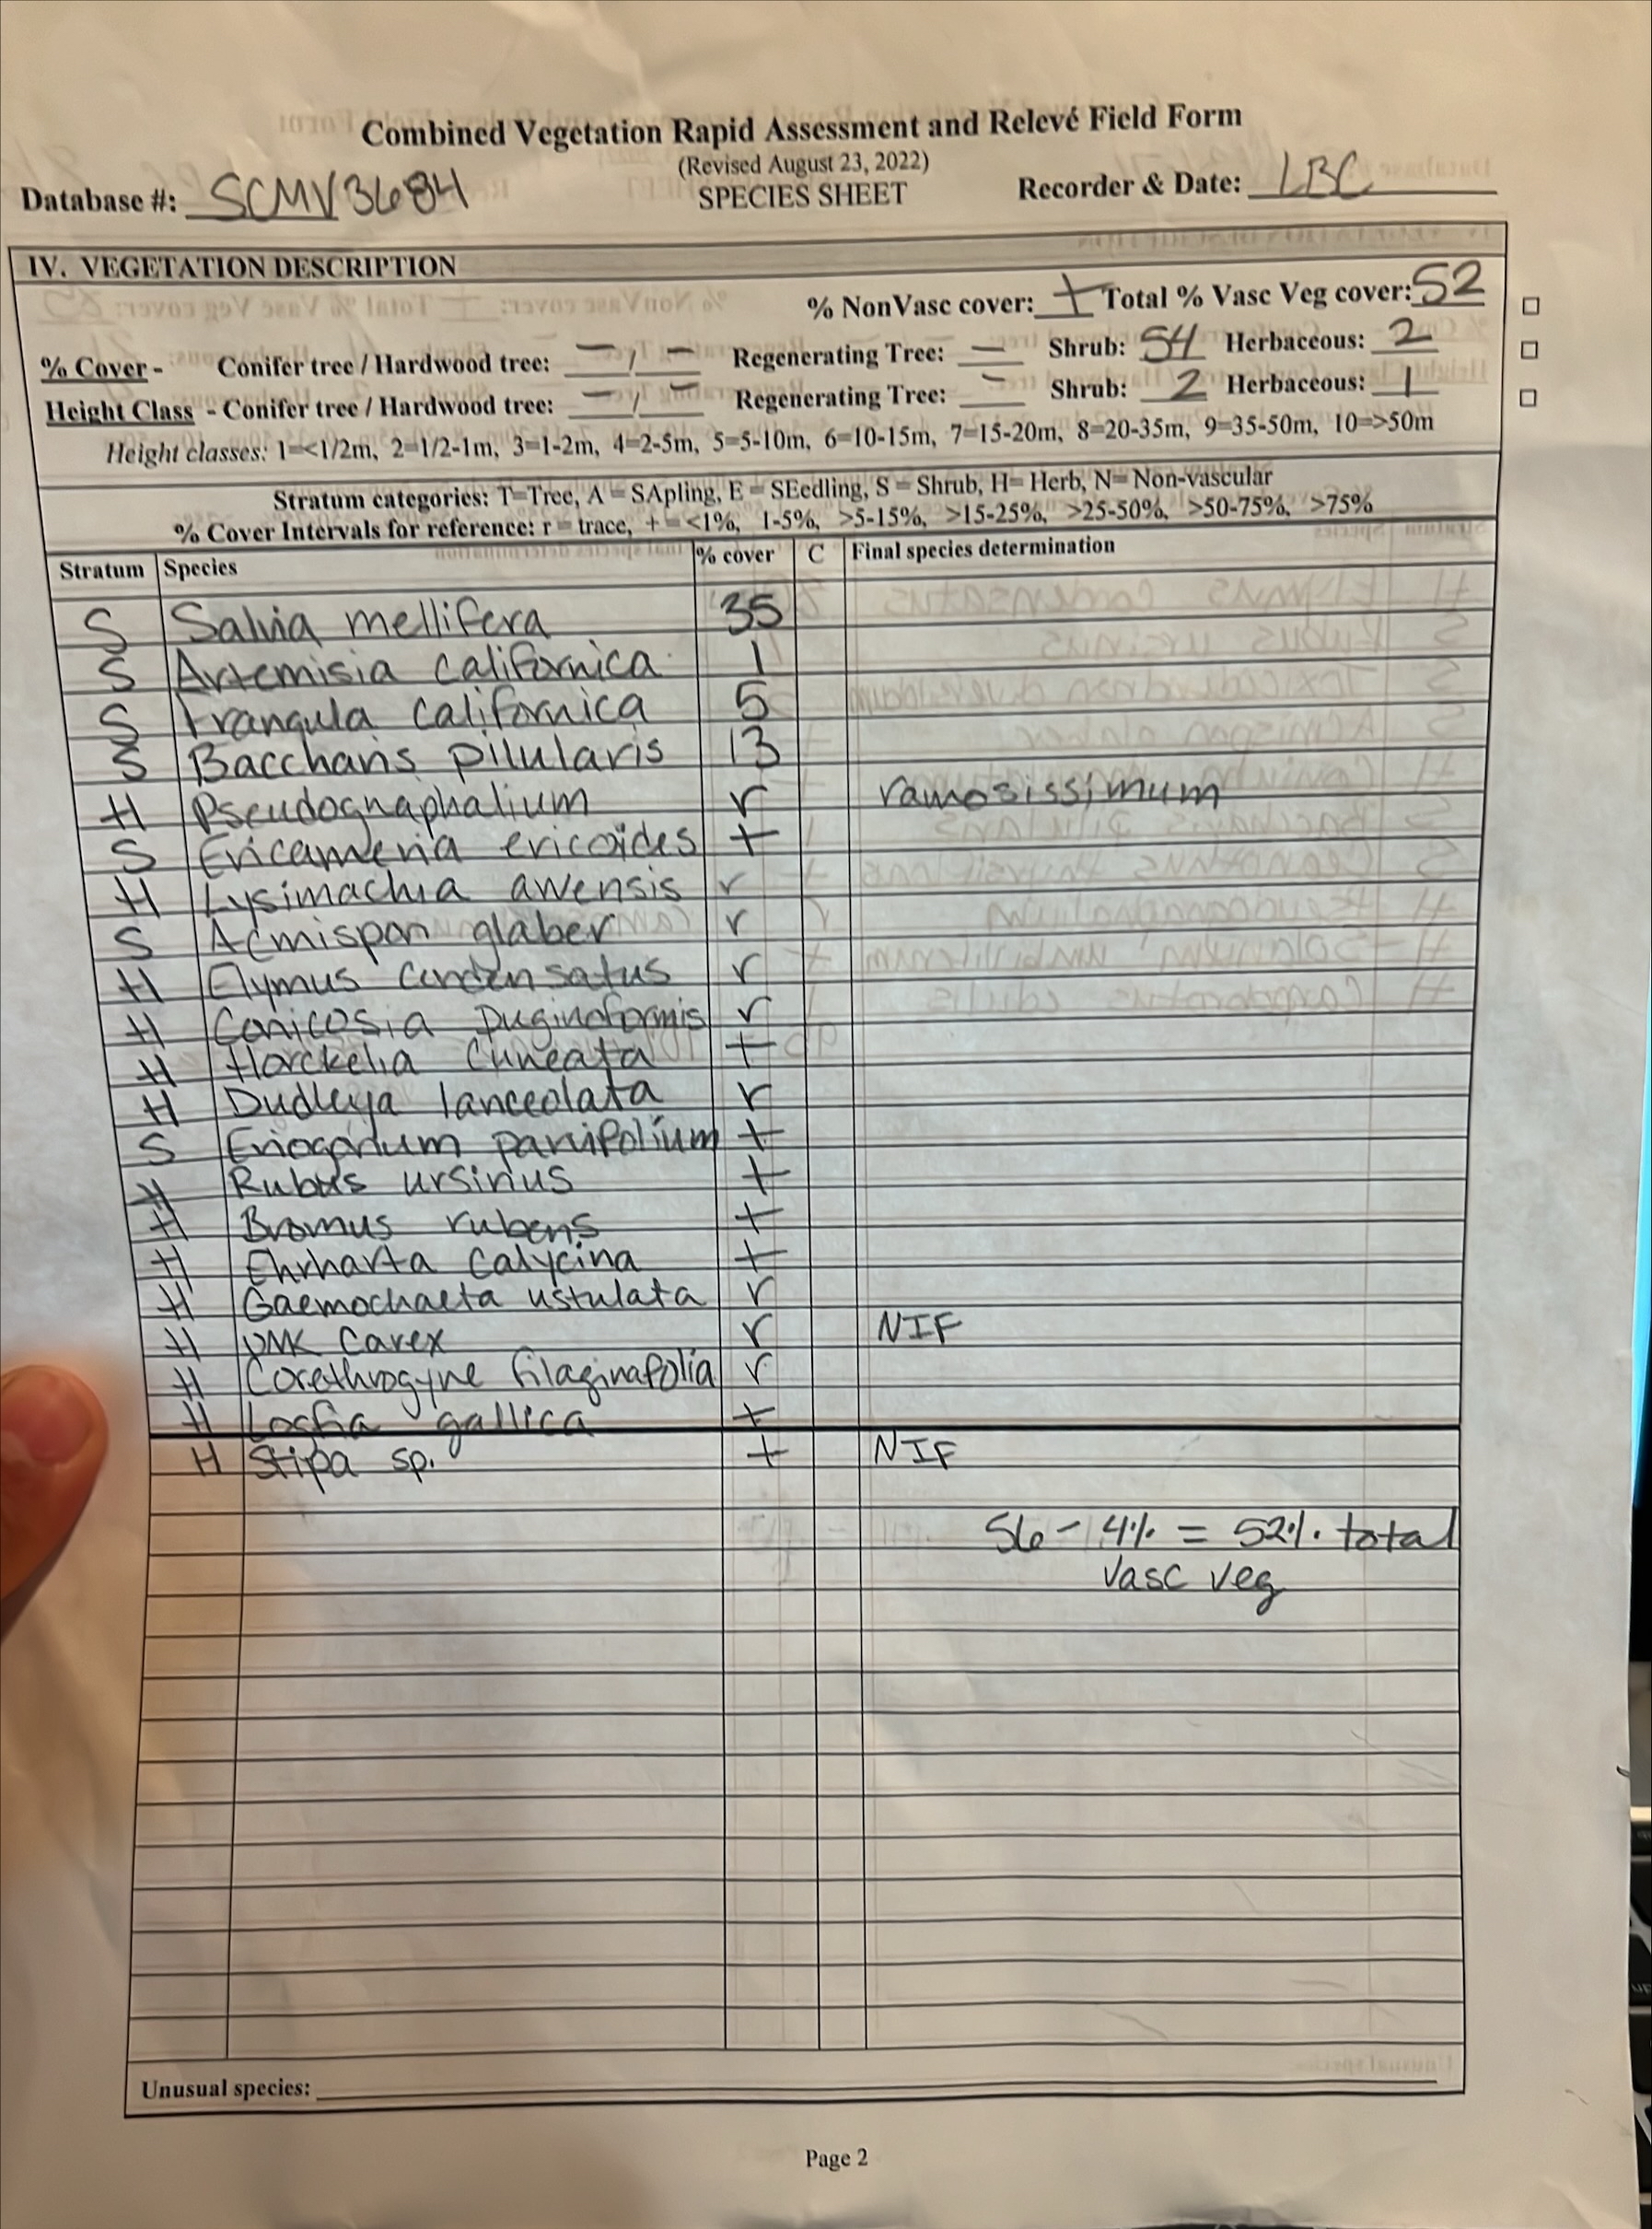 Combined Vegetation Rapid Assessment and Relevé Field Form
(Revised August 23, 2022)
Database #: SCMV3684 SPECIES SHEET Recorder & Date: LBC
IV. VEGETATION DESCRIPTION
% NonVasc cover: + Total % Vasc Veg cover: 52
% Cover - Conifer tree / Hardwood tree: — / — Regenerating Tree: — Shrub: 54 Herbaceous: 2
Height Class - Conifer tree / Hardwood tree: — / — Regenerating Tree: — Shrub: 2 Herbaceous: 1
Height classes: 1=<1/2m, 2=1/2-1m, 3=1-2m, 4=2-5m, 5=5-10m, 6=10-15m, 7=15-20m, 8=20-35m, 9=35-50m, 10=>50m
Stratum categories: T=Tree, A = SApling, E = SEedling, S = Shrub, H= Herb, N= Non-vascular
% Cover Intervals for reference: r = trace, + = <1%, 1-5%, >5-15%, >15-25%, >25-50%, >50-75%, >75%
Stratum Species % cover C Final species determination
S Salvia mellifera 35
S Artemisia californica 1
S Frangula californica 5
S Baccharis pilularis 13
H Pseudognaphalium r ramosissimum
S Ericameria ericoides +
H Lysimachia arvensis r
S Acmispon glaber r
H Elymus condensatus r
H Conicosia pugioniformis r
H Horckelia cuneata +
H Dudleya lanceolata r
S Eriogonum parvifolium +
H Rubus ursinus +
H Bromus rubens +
H Ehrharta calycina +
H Gaemochaeta ustulata r
H UNK Carex r NIF
H Corethrogyne filaginafolia r
H Logfia gallica +
H Stipa sp. + NIF
56 - 4% = 52% total
vasc veg
Unusual species:
Page 2